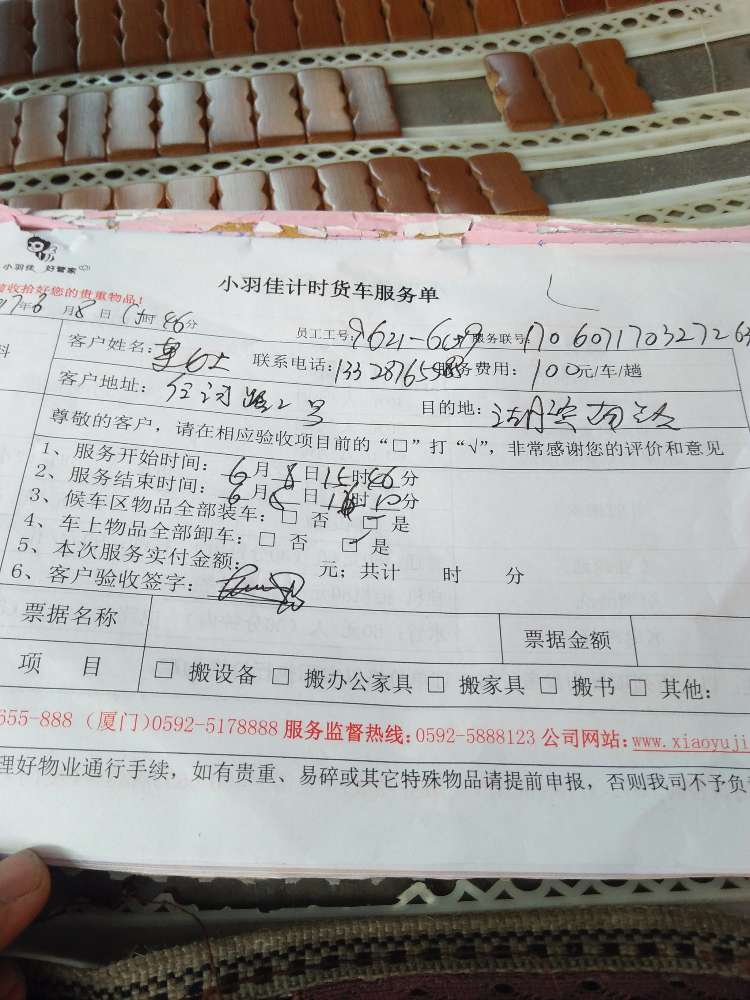 小羽佳 好管家
小羽佳计时货车服务单
验收拾好您的贵重物品!
17年6月8日15时46分
员工工号: 9621-609 服务联号: 1706071703272
客户姓名: 联系电话: 服务费用: 100元/车/趟
客户地址: 2号 目的地: 湖滨南路
尊敬的客户，请在相应验收项目前的“□”打“√”，非常感谢您的评价和意见
1、服务开始时间: 6月8日15时46分
2、服务结束时间: 6月8日 时10分
3、候车区物品全部装车: □ 否 ☑ 是
4、车上物品全部卸车: □ 否 ☑ 是
5、本次服务实付金额: 元; 共计 时 分
6、客户验收签字:
票据名称 票据金额
项 目 □ 搬设备 □ 搬办公家具 □ 搬家具 □ 搬书 □ 其他:
655-888 (厦门)0592-5178888 服务监督热线:0592-5888123 公司网站:www.xiaoyuji
理好物业通行手续，如有贵重、易碎或其它特殊物品请提前申报，否则我司不予负